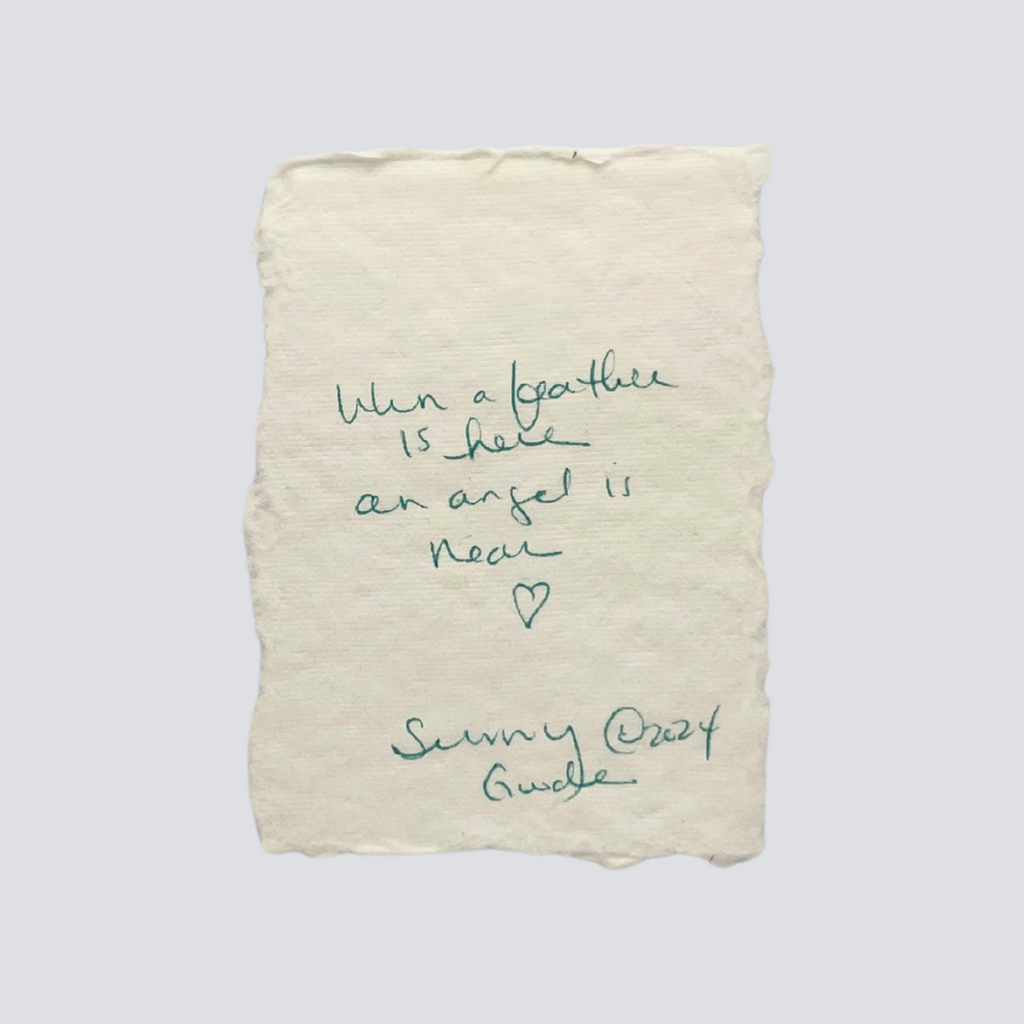 When a feather
is here
an angel is
near
♡
Sunny ©2024